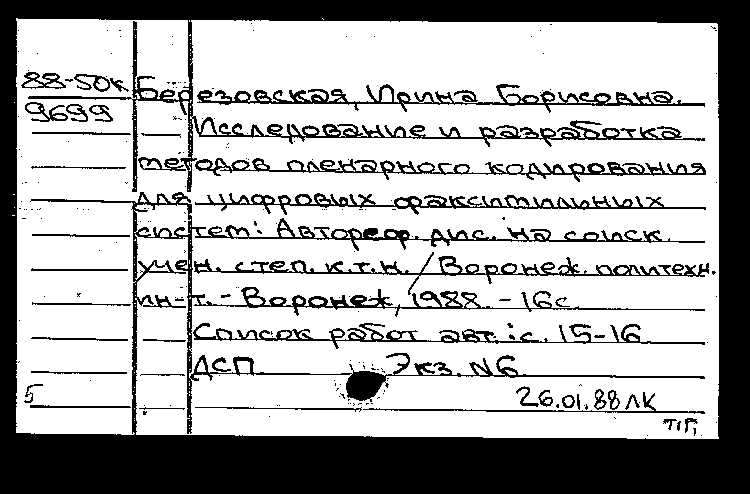 88-50к
9699
Березовская, Ирина Борисовна.
Исследование и разработка
методов пленарного кодирования
для цифровых факсимильных
систем: Автореф. дис. на соиск.
учен. степ. к.т.н. / Воронеж. политехн.
ин-т. - Воронеж, 1988. - 16с.
Список работ авт.: с. 15-16
ДСП Экз. N6
5 26.01.88 ЛК